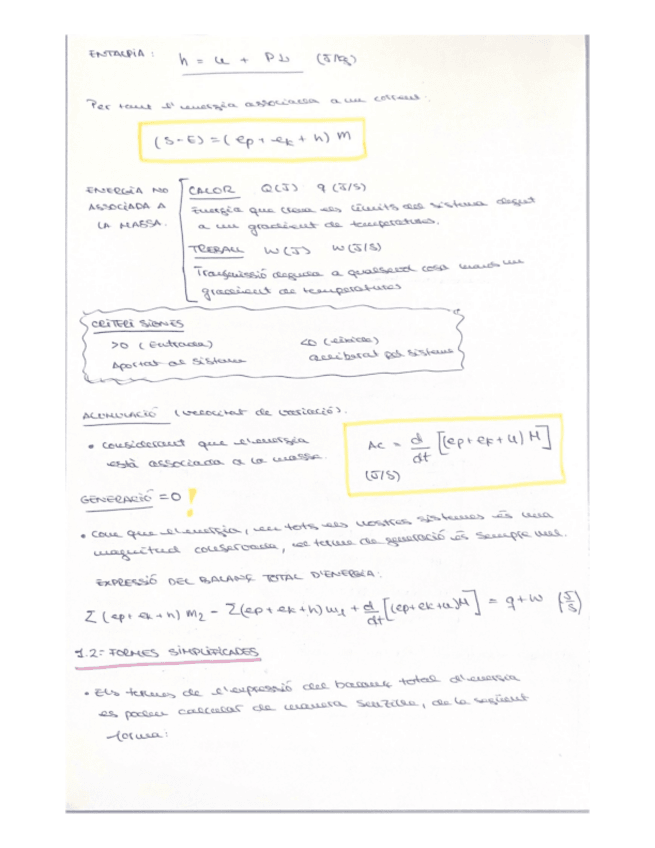 ENTALPIA : h = u + P ν (J/Kg)
Per tant l'energia associada a un corrent:
(S-E) = (ep + ek + h) m
ENERGIA NO ASSOCIADA A LA MASSA.
CALOR Q(J) q (J/S)
Energia que creua els límits del sistema degut
a un gradient de temperatures.
TREBALL W(J) W(J/S)
Transmissió deguda a qualsevol cosa menys un
gradient de temperatures
CRITERI SIGNES
>0 (Entrada) <0 (eixida)
Aportat al sistema alliberat pel sistema
ACUMULACIÓ (velocitat de variació).
• considerant que l'energia
està associada a la massa.
Ac = d/dt [(ep + ek + u) M]
(J/S)
GENERACIÓ = 0 !
• Com que l'energia, en tots els nostres sistemes és una
magnitud conservada, el terme de generació és sempre nul.
EXPRESSIÓ DEL BALANÇ TOTAL D'ENERGIA:
Σ (ep + ek + h) m2 - Σ(ep + ek + h) m1 + d/dt [(ep+ek+u)M] = q + w (J/S)
1.2 = FORMES SIMPLIFICADES
• Els termes de l'expressió del balanç total d'energia
es poden calcular de manera senzilla, de la següent
forma: